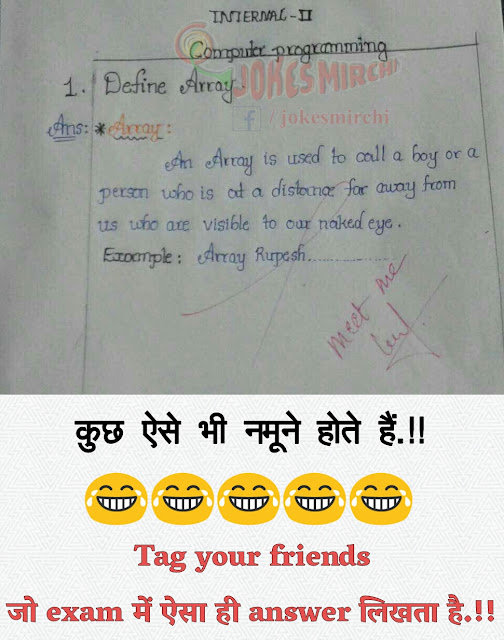 INTERNAL-II
Computer programming
JOKESMIRCHI
f / jokesmirchi
1. Define Array.
Ans: * Array :
An Array is used to call a boy or a
person who is at a distance far away from
us who are visible to our naked eye.
Example : Array Rupesh..................
meet me
कुछ ऐसे भी नमूने होते हैं.!!
😂😂😂😂😂
Tag your friends
जो exam में ऐसा ही answer लिखता है.!!